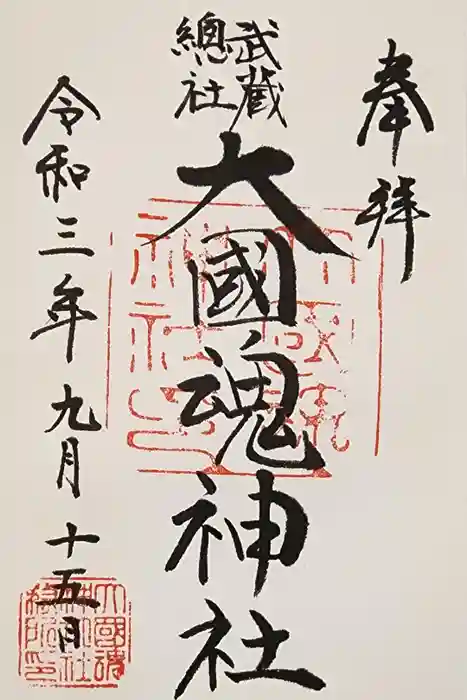 奉拝
武藏
總社
大國魂神社
令和三年九月十五日